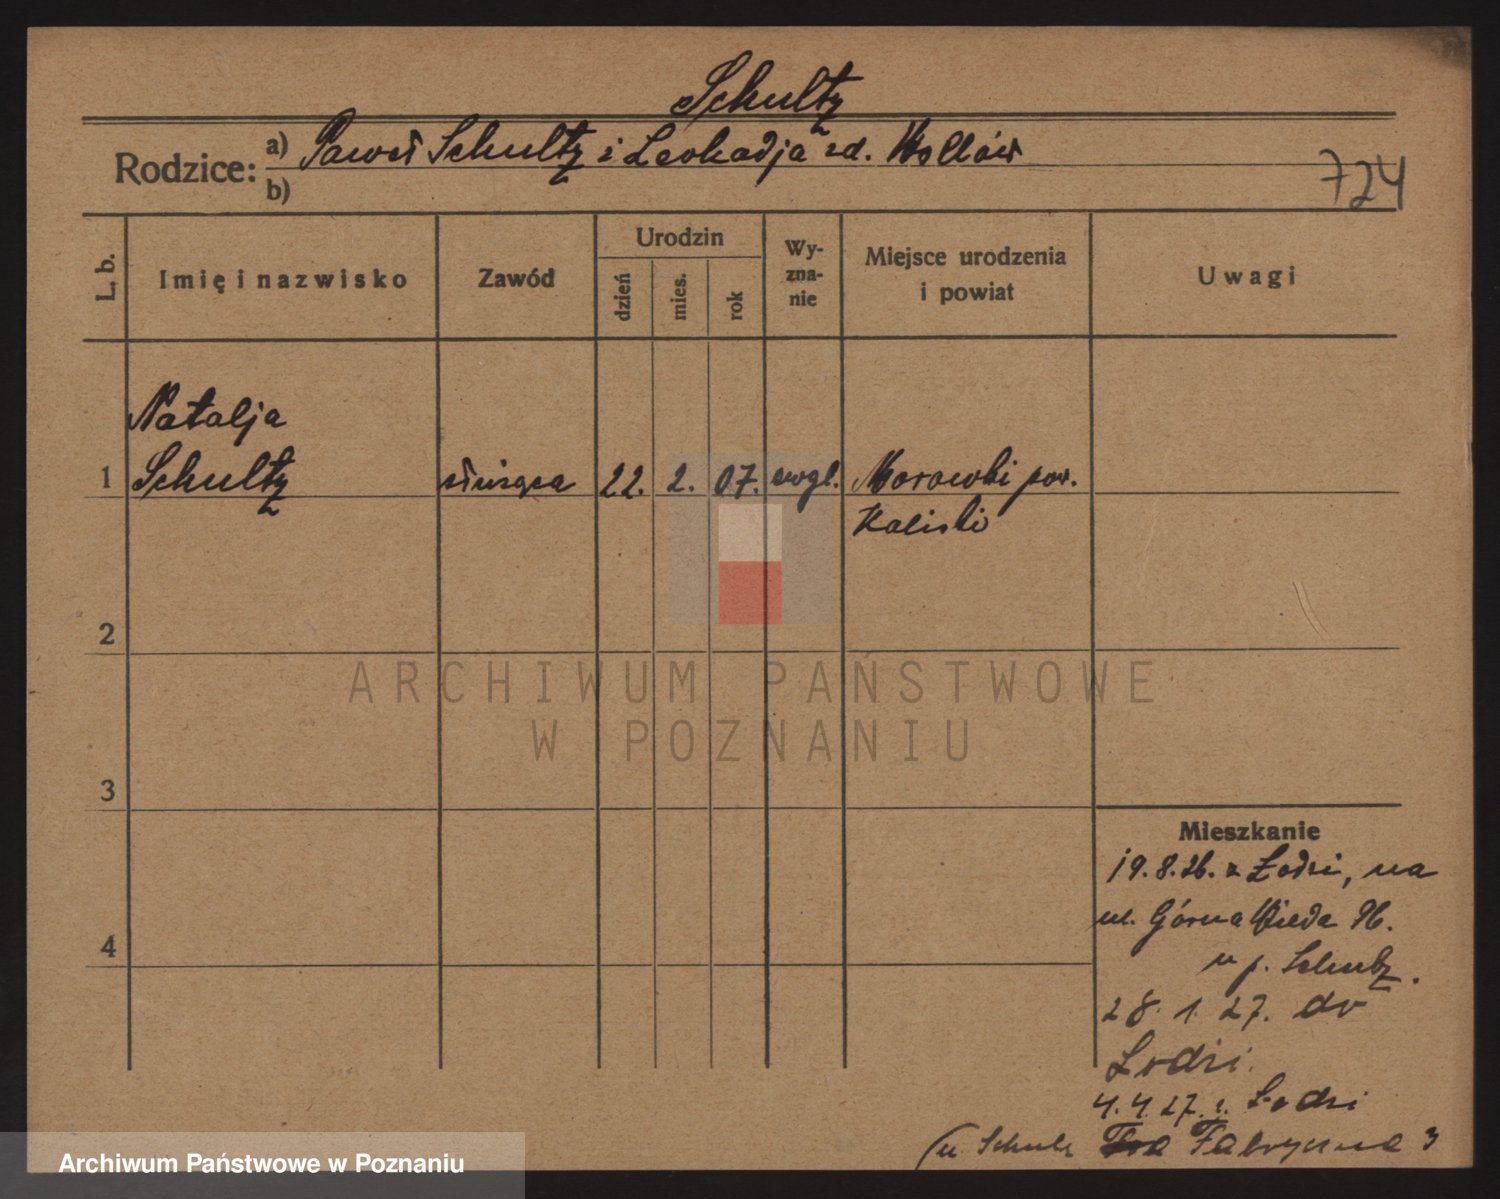 Schultz
Rodzice: a) Paweł Schultz i Leokadja zd. Wollów
b)
724
L. b.
Imię i nazwisko
Zawód
Urodzin
dzień
mies.
rok
Wy-
zna-
nie
Miejsce urodzenia
i powiat
Uwagi
Natalja
1 Schultz służąca 22. 2. 07. ewgl. Morawki pow.
Kaliski
2
3
4
Mieszkanie
19.8.26. z Łodzi, na
ul. Górna Wilda 96.
u p. Schultz.
28. 1. 27. do
Łodzi.
4.4.27. z Łodzi
(u Schulz Fabryczna 3
ARCHIWUM PAŃSTWOWE
W POZNANIU
Archiwum Państwowe w Poznaniu